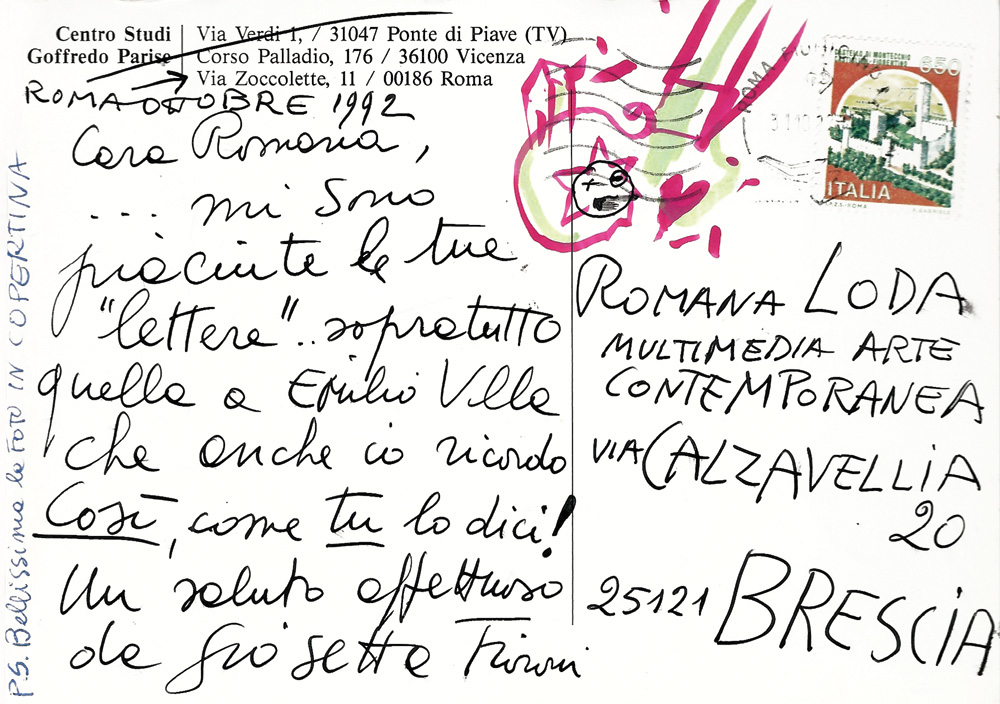 Centro Studi
Goffredo Parise
Via Verdi 1, / 31047 Ponte di Piave (TV)
Corso Palladio, 176 / 36100 Vicenza
Via Zoccolette, 11 / 00186 Roma
ROMA OTTOBRE 1992
Cara Romana,
... mi sono
piaciute le tue
"lettere".. sopratutto
quella a Emilio Villa
che anche io ricordo
Così, come tu lo dici!
Un saluto affettuoso
da Giosetta Fioroni
P.S. Bellissima la FOTO IN COPERTINA
CASTELLO DI MONTECCHIO
650
ITALIA
ROMA
ROMANA LODA
MULTIMEDIA ARTE
CONTEMPORANEA
VIA CALZAVELLIA
20
25121 BRESCIA